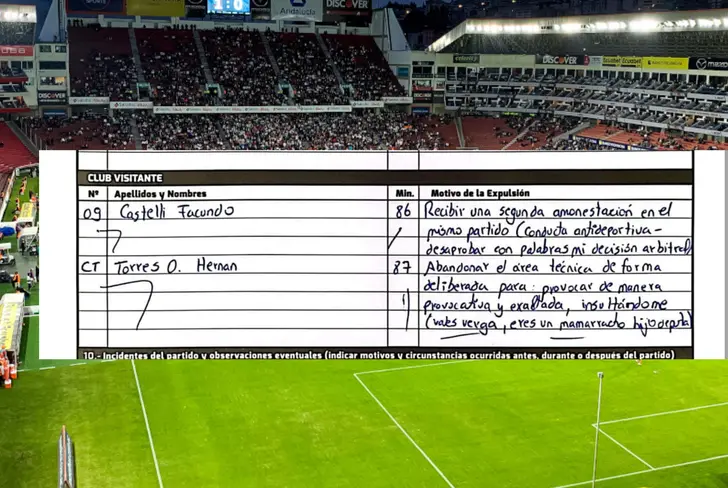 1:0
DISCOVER
Andalucía
DISCOVER
DISCOVER
DISCOVER
mazda
CLUB VISITANTE
Nº Apellidos y Nombres Min. Motivo de la Expulsión
09 Castelli Facundo 86 Recibir una segunda amonestación en el
mismo partido (conducta antideportiva-
desaprobar con palabras mi decisión arbitral)
CT Torres O. Hernan 87 Abandonar el área técnica de forma
deliberada para: provocar de manera
provocativa y exaltada, insultándome
(vales verga, eres un mamarracho hijodeputa)
10 - Incidentes del partido y observaciones eventuales (indicar motivos y circunstancias ocurridas antes, durante o después del partido)